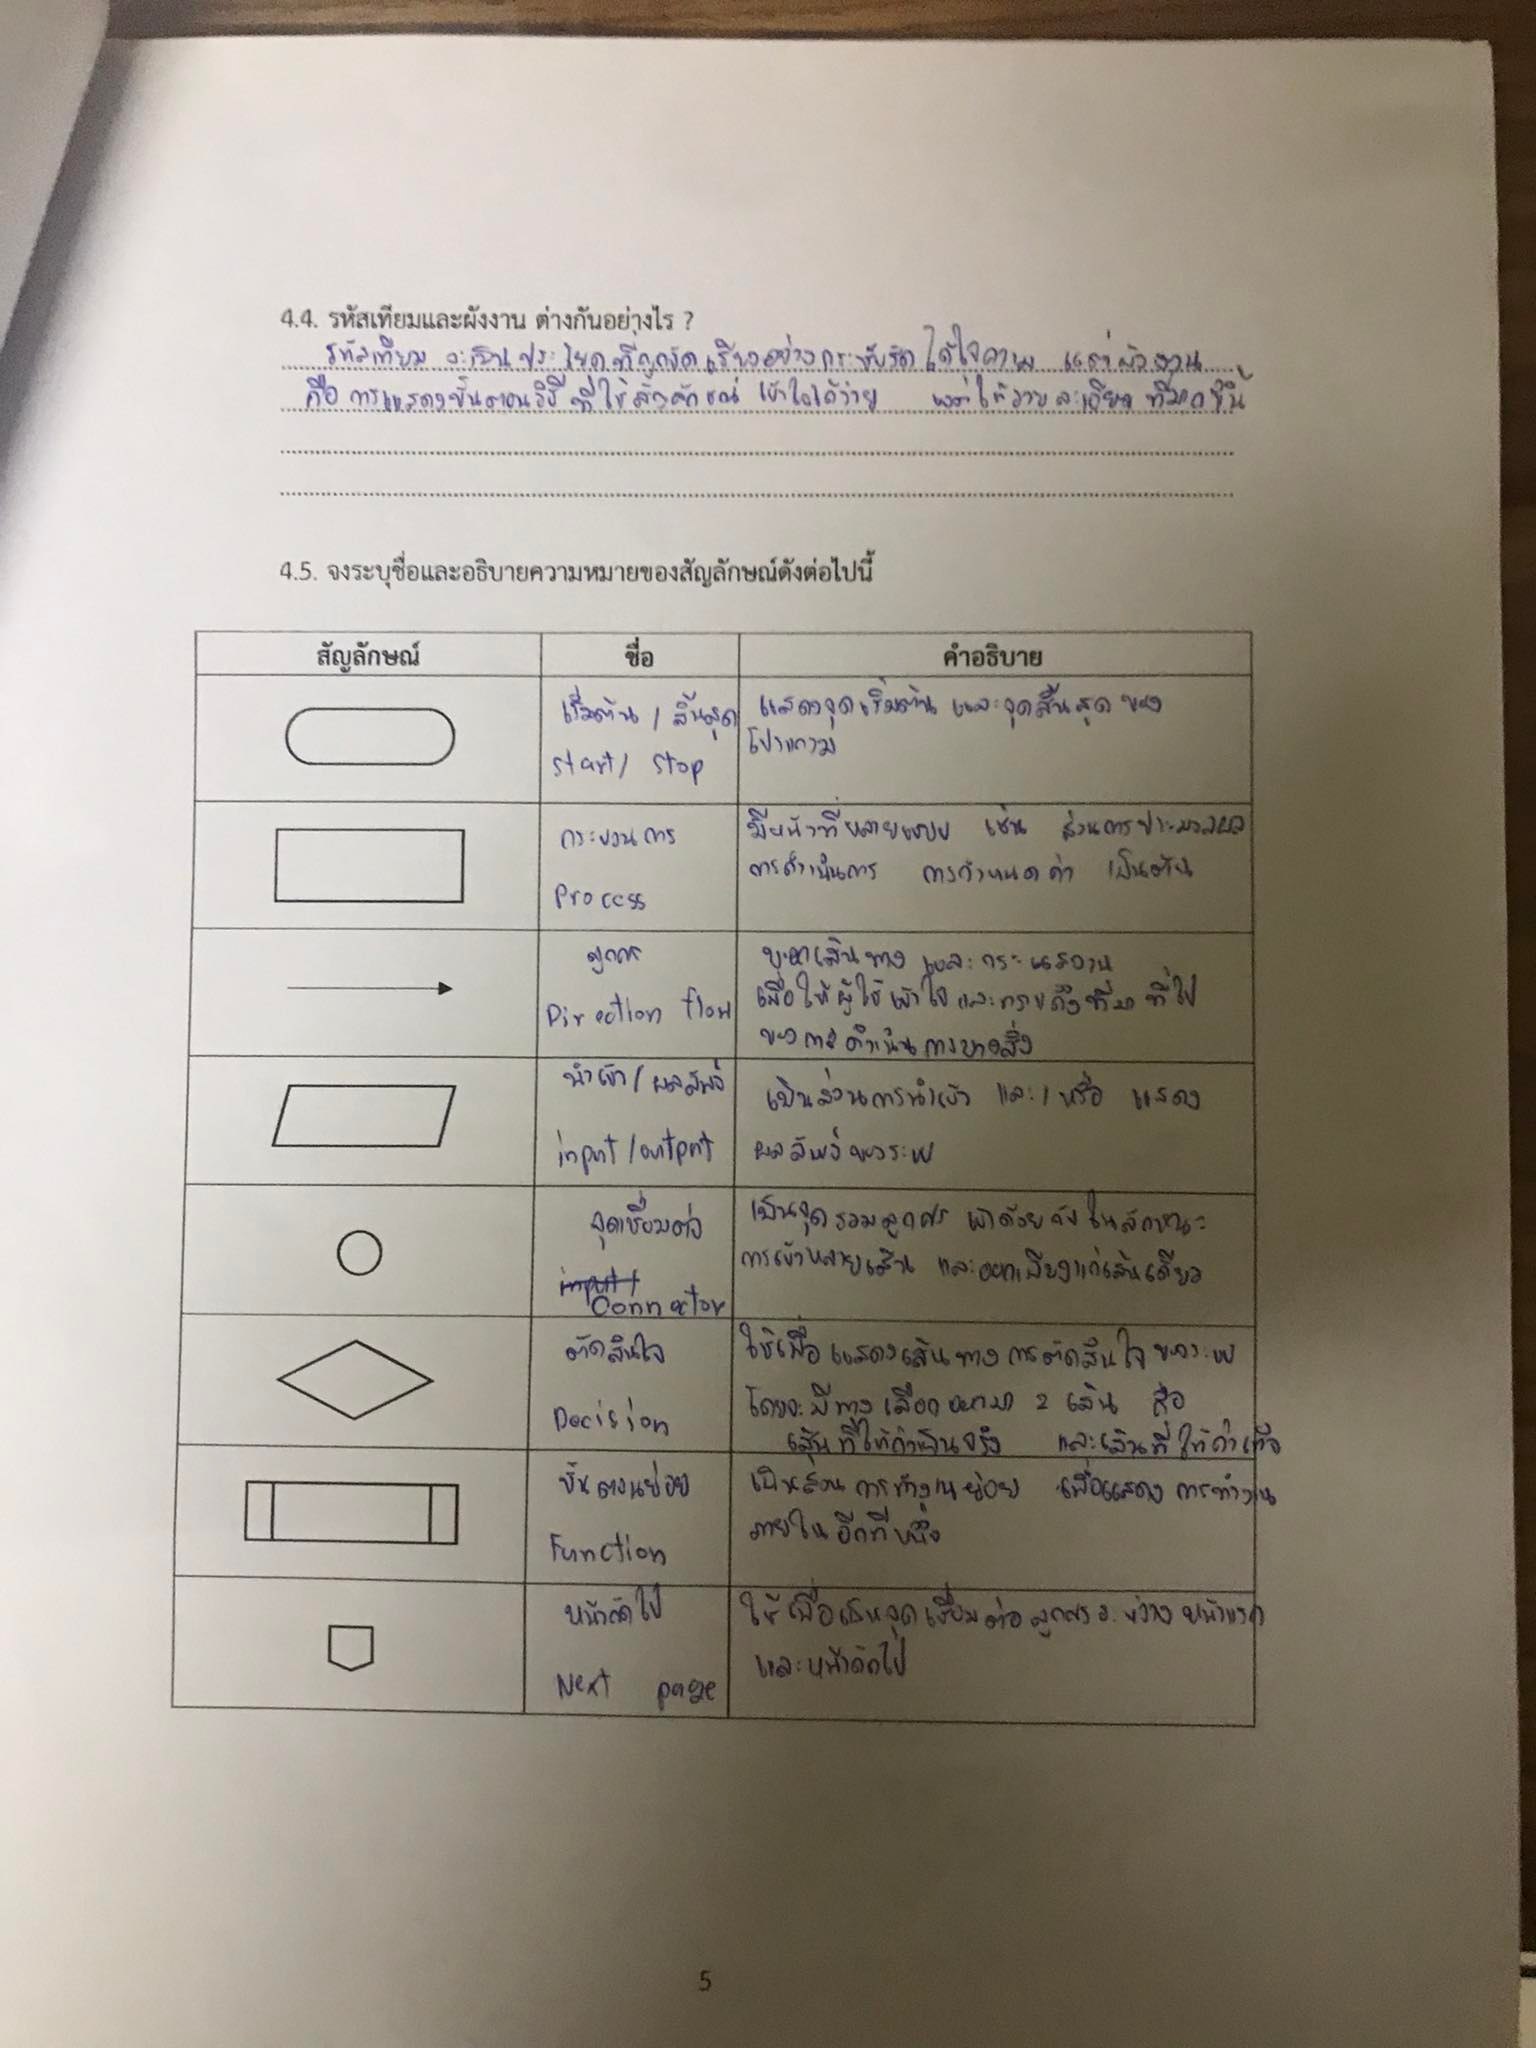 4.4. รหัสเทียมและผังงาน ต่างกันอย่างไร ?
รหัสเทียม จะเป็นประโยคที่ถูกจัดเรียงอย่างกระชับรัด ได้ใจความ แต่ผังงาน
คือ การแสดงขั้นตอนวิธี ที่ใช้สัญลักษณ์ เข้าใจได้ง่าย และให้รายละเอียด ที่มากขึ้น
4.5. จงระบุชื่อและอธิบายความหมายของสัญลักษณ์ดังต่อไปนี้
สัญลักษณ์ ชื่อ คำอธิบาย
เริ่มต้น / สิ้นสุด
start/ stop
แสดงจุดเริ่มต้น และจุดสิ้นสุด ของ
โปรแกรม
กระบวนการ
Process
มีหน้าที่หลายแบบ เช่น ส่วนการประมวลผล
การดำเนินการ การกำหนดค่า เป็นต้น
ลูกศร
Direction flow
บอกเส้นทาง และกระแสงาน
เพื่อให้ผู้ใช้เข้าใจ และทราบถึงที่มา ที่ไป
ของการดำเนินการบางสิ่ง
นำเข้า/ผลลัพธ์
input/output
เป็นส่วนการนำเข้า และ/หรือ แสดง
ผลลัพธ์ของระบบ
จุดเชื่อมต่อ
Connector
เป็นจุดรวมลูกศร เข้าด้วยกัน ในลักษณะ
การเข้าหลายเส้น และออกเพียงแค่เส้นเดียว
ตัดสินใจ
Decision
ใช้เพื่อแสดงเส้นทางการตัดสินใจของระบบ
โดยจะมีทางเลือกออกมา 2 เส้น คือ
เส้นที่ให้ค่าเป็นจริง และเส้นที่ให้ค่าเท็จ
ขั้นตอนย่อย
Function
เป็นส่วนการทำงานย่อย เพื่อแสดงการทำงาน
ภายใน อีกทีหนึ่ง
หน้าถัดไป
Next page
ใช้เพื่อเป็นจุดเชื่อมต่อลูกศรระหว่างหน้าแรก
และหน้าถัดไป
5